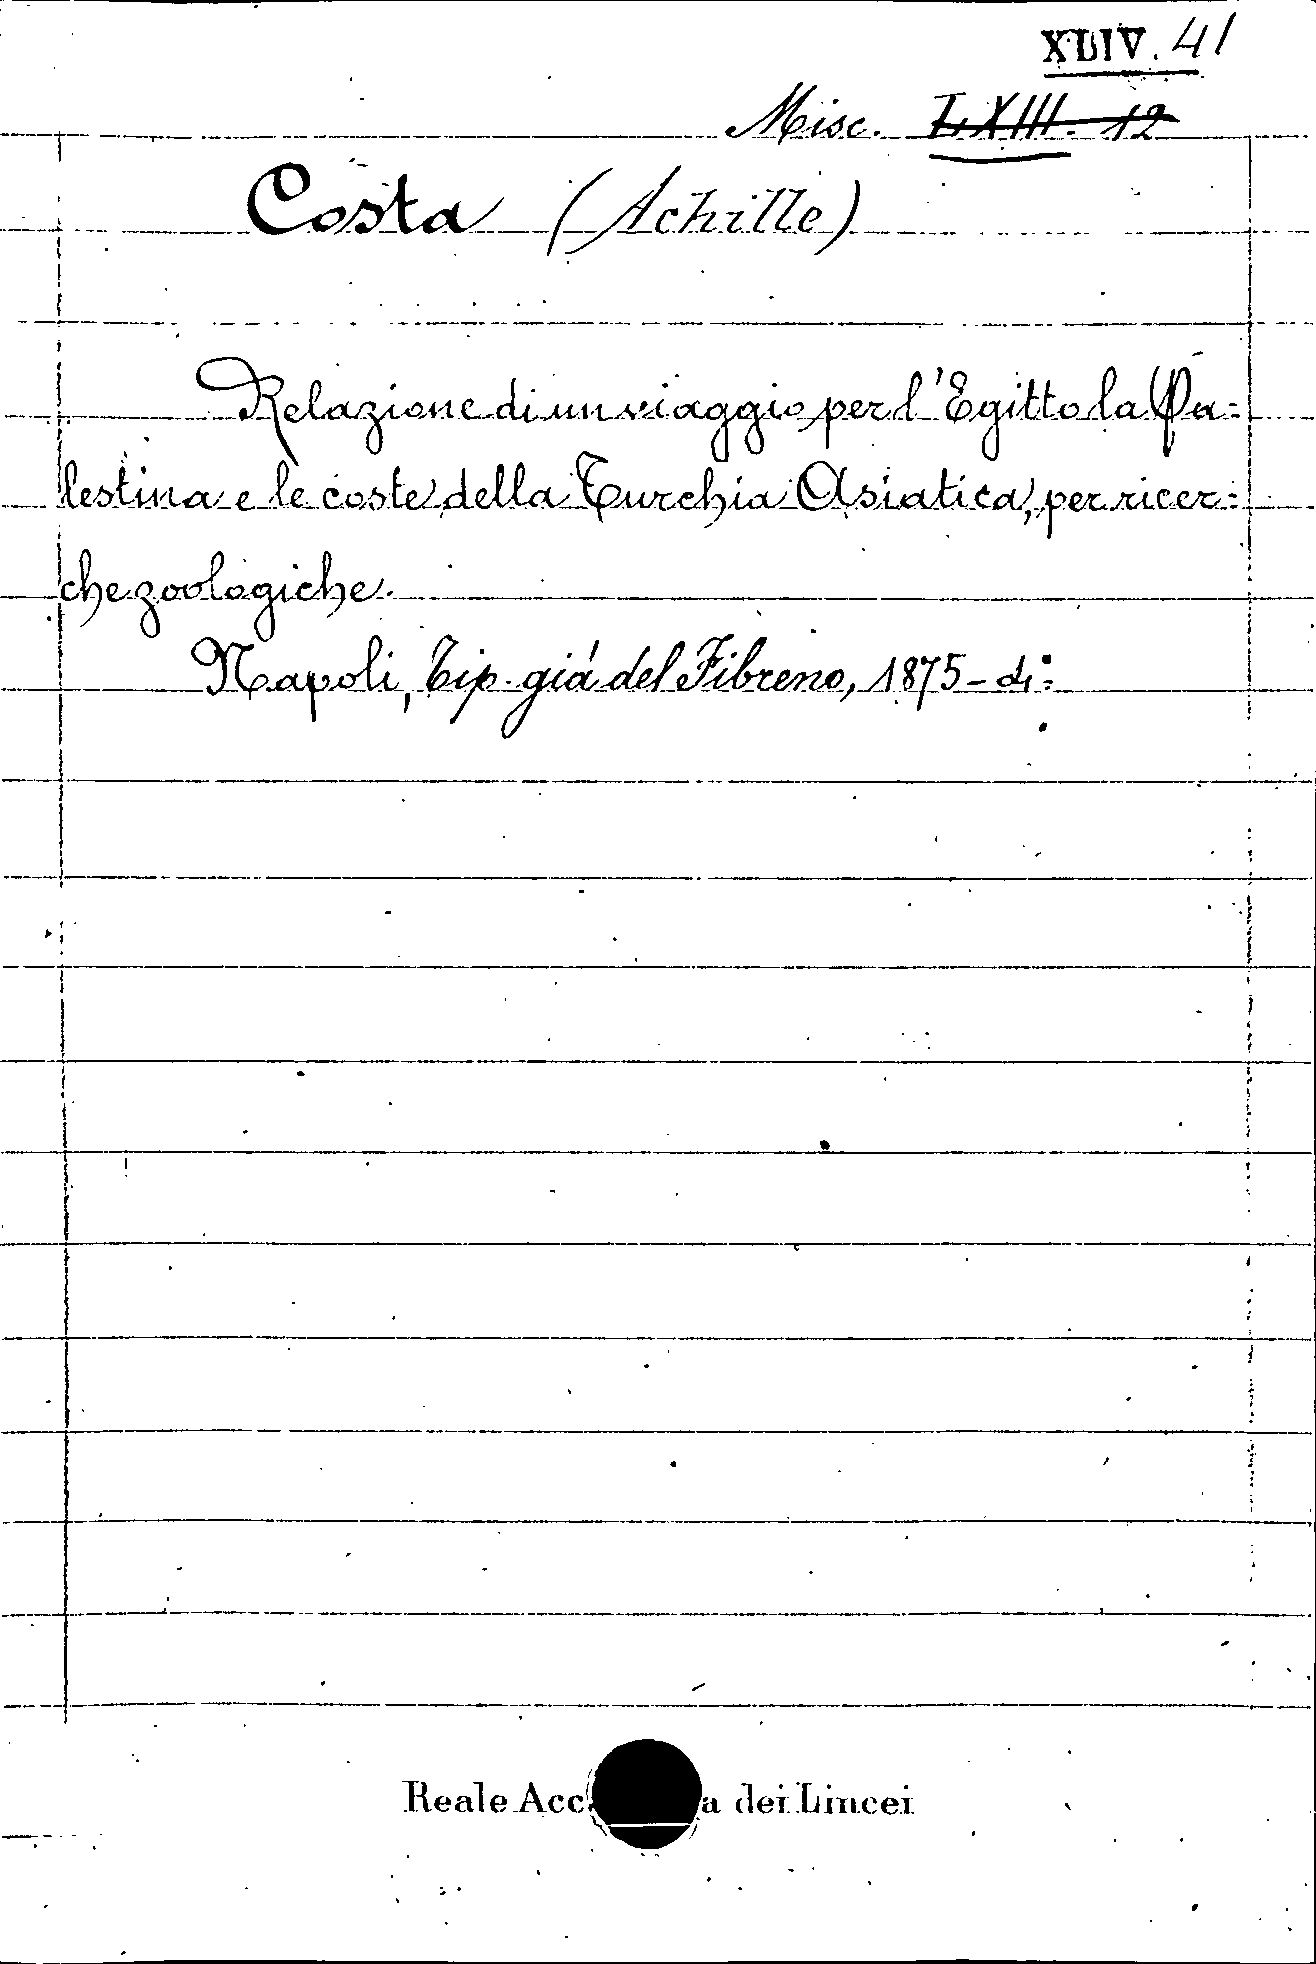 XLIV. 41
Misc. LXIII. 12
Costa (Achille)
Relazione di un viaggio per l'Egitto la Pa=
lestina e le coste della Turchia Asiatica, per ricer=
che zoologiche.
Napoli, Tip. giá del Fibreno, 1875 - di:
Reale Acc a dei Lincei